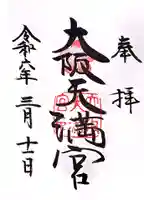 奉拝
大阪天満宮
令和六年三月十一日